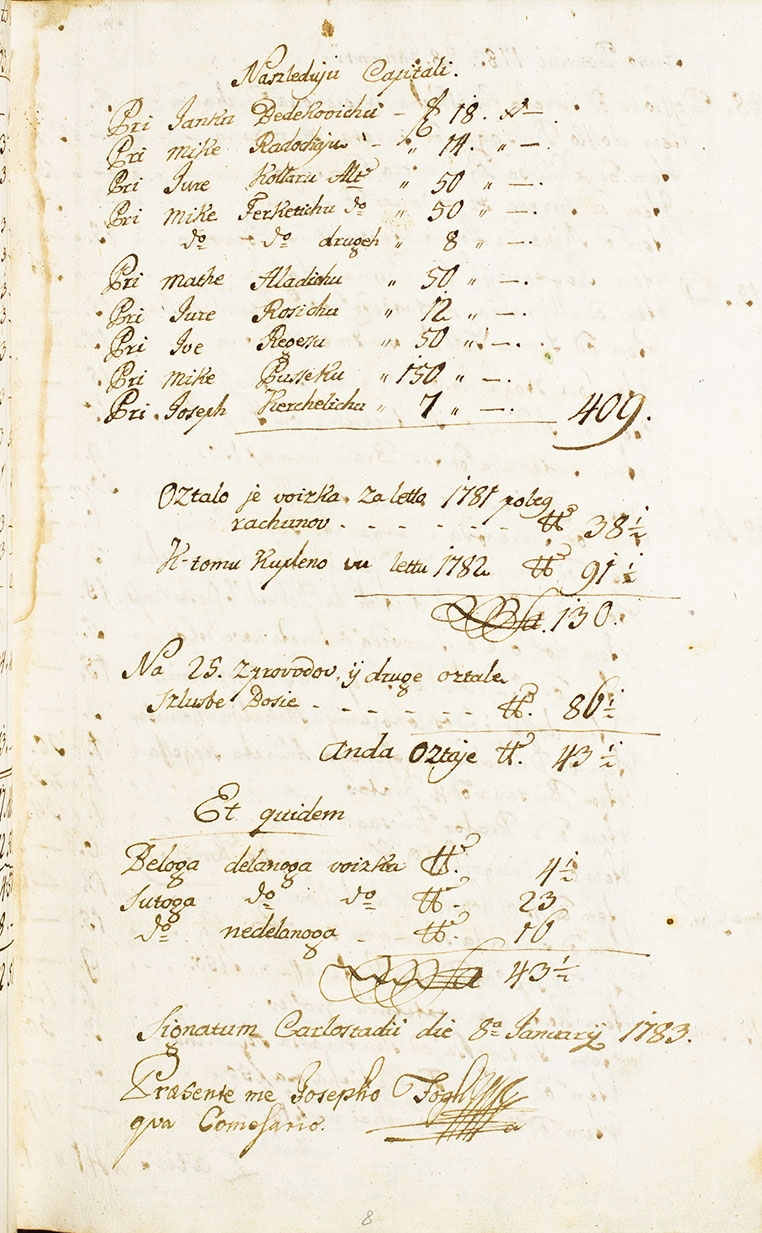 Naszleduju Capitali.
Pri Janku Bedekovichu - f 18. x -
Pri Mike Radochaju - " 14. " -.
Pri Jure Kollaru Alt " 50 " -.
Pri Mike Ferketichu do " 50 " -.
do do drugeh " 8 " -.
Pri Mathe Aladichu " 50 " -.
Pri Jure Rosichu " 12 " -.
Pri Ive " 50 " -.
Pri Mike Busseku " 150 " -.
Pri Joseph Kerchelichu " 7 " -. 409.
Oztalo je voizka za letto 1781 poleg
rachunov - - - - - - - ℔ 38 1/2
K-tomu Kupleno vu lettu 1782 ℔ 91 1/2
Sa. 130.
Na 25. zprovodov, ÿ druge oztale
Szlusbe Dosie - - - - - - ℔. 86 1/2
Anda Oztaje ℔. 43 1/2
Et quidem
Beloga delanoga voizka ℔. 4 1/2
Sutoga do do ℔ - 23
do nedelanoga - ℔. 16
Sa 43 1/2
Signatum Carlostadii die 8a Januarÿ 1783.
Præsente me Josepho
qua Comesario.
8